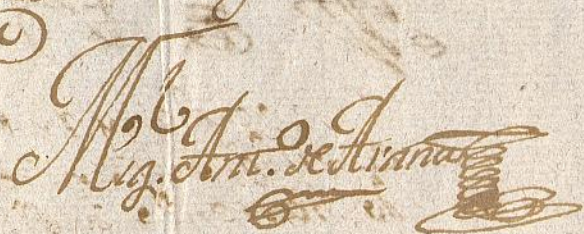 Mig.l Ant.o de Arana